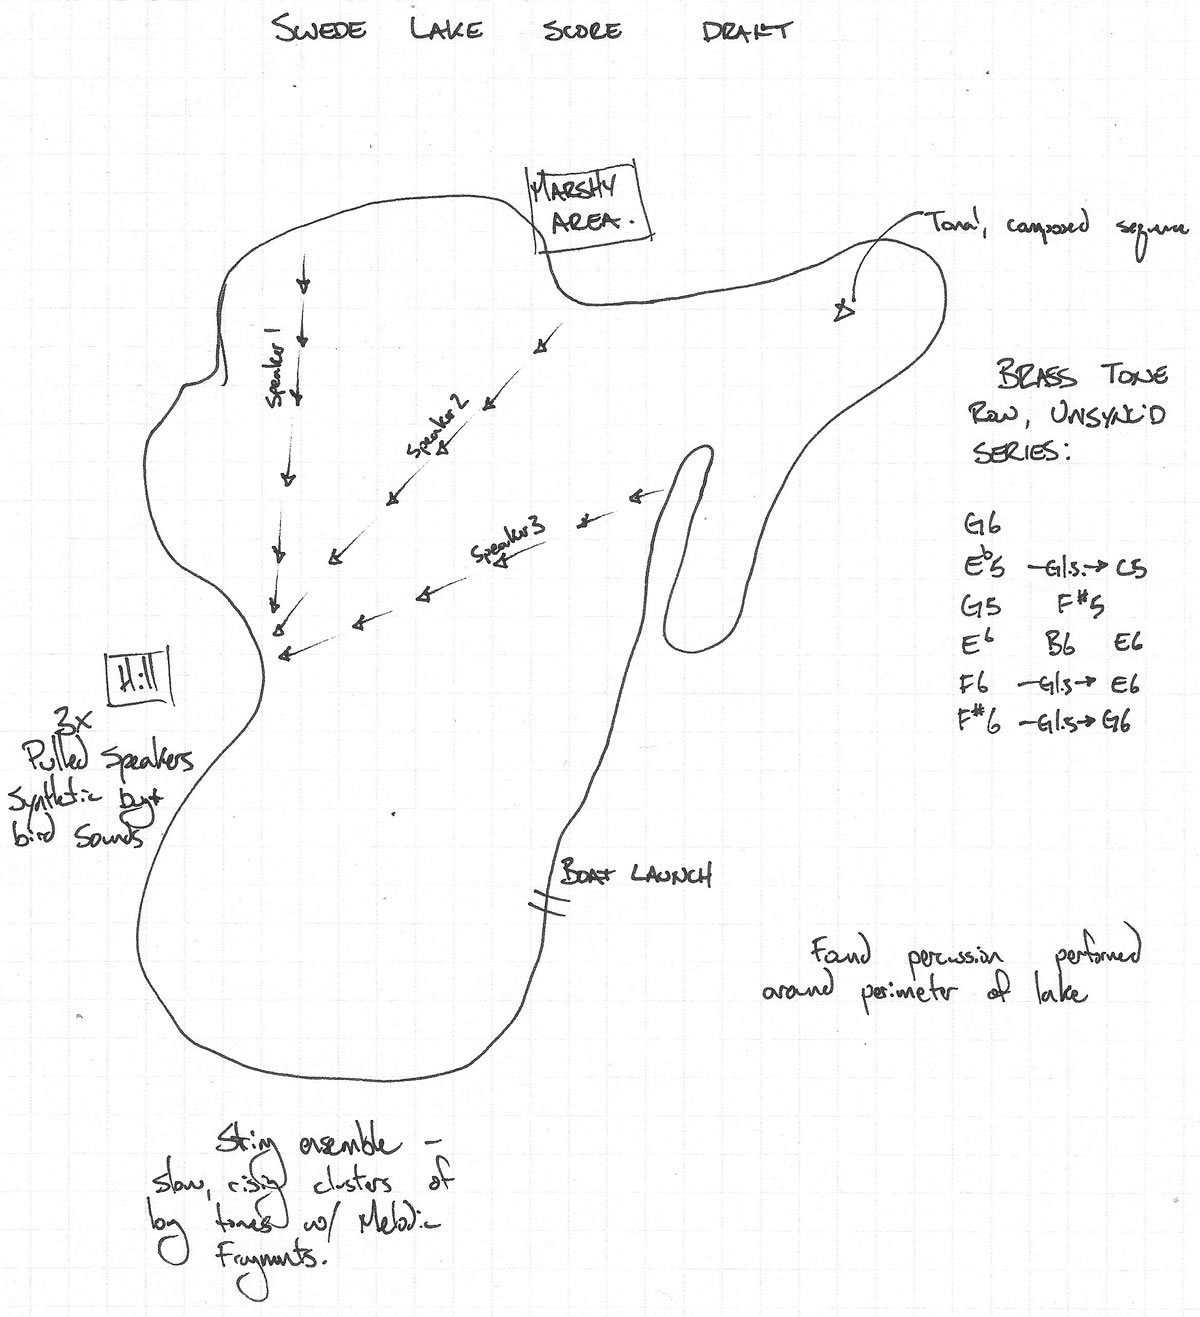 SWEDE LAKE SCORE DRAFT
MARSHY
AREA.
Tonal, composed sequence
Speaker 1
Speaker 2
Speaker 3
BRASS TONE
ROW, UNSYNC'D
SERIES:
G6
Eb5 —Glis.→ C5
G5 F#5
E6 B6 E6
F6 —Glis→ E6
F#6 —Glis→ G6
Hill
3x
Pulled Speakers
Synthetic bug +
bird Sounds
BOAT LAUNCH
Found percussion performed
around perimeter of lake
String ensemble —
slow, rising clusters of
long tones w/ Melodic
Fragments.